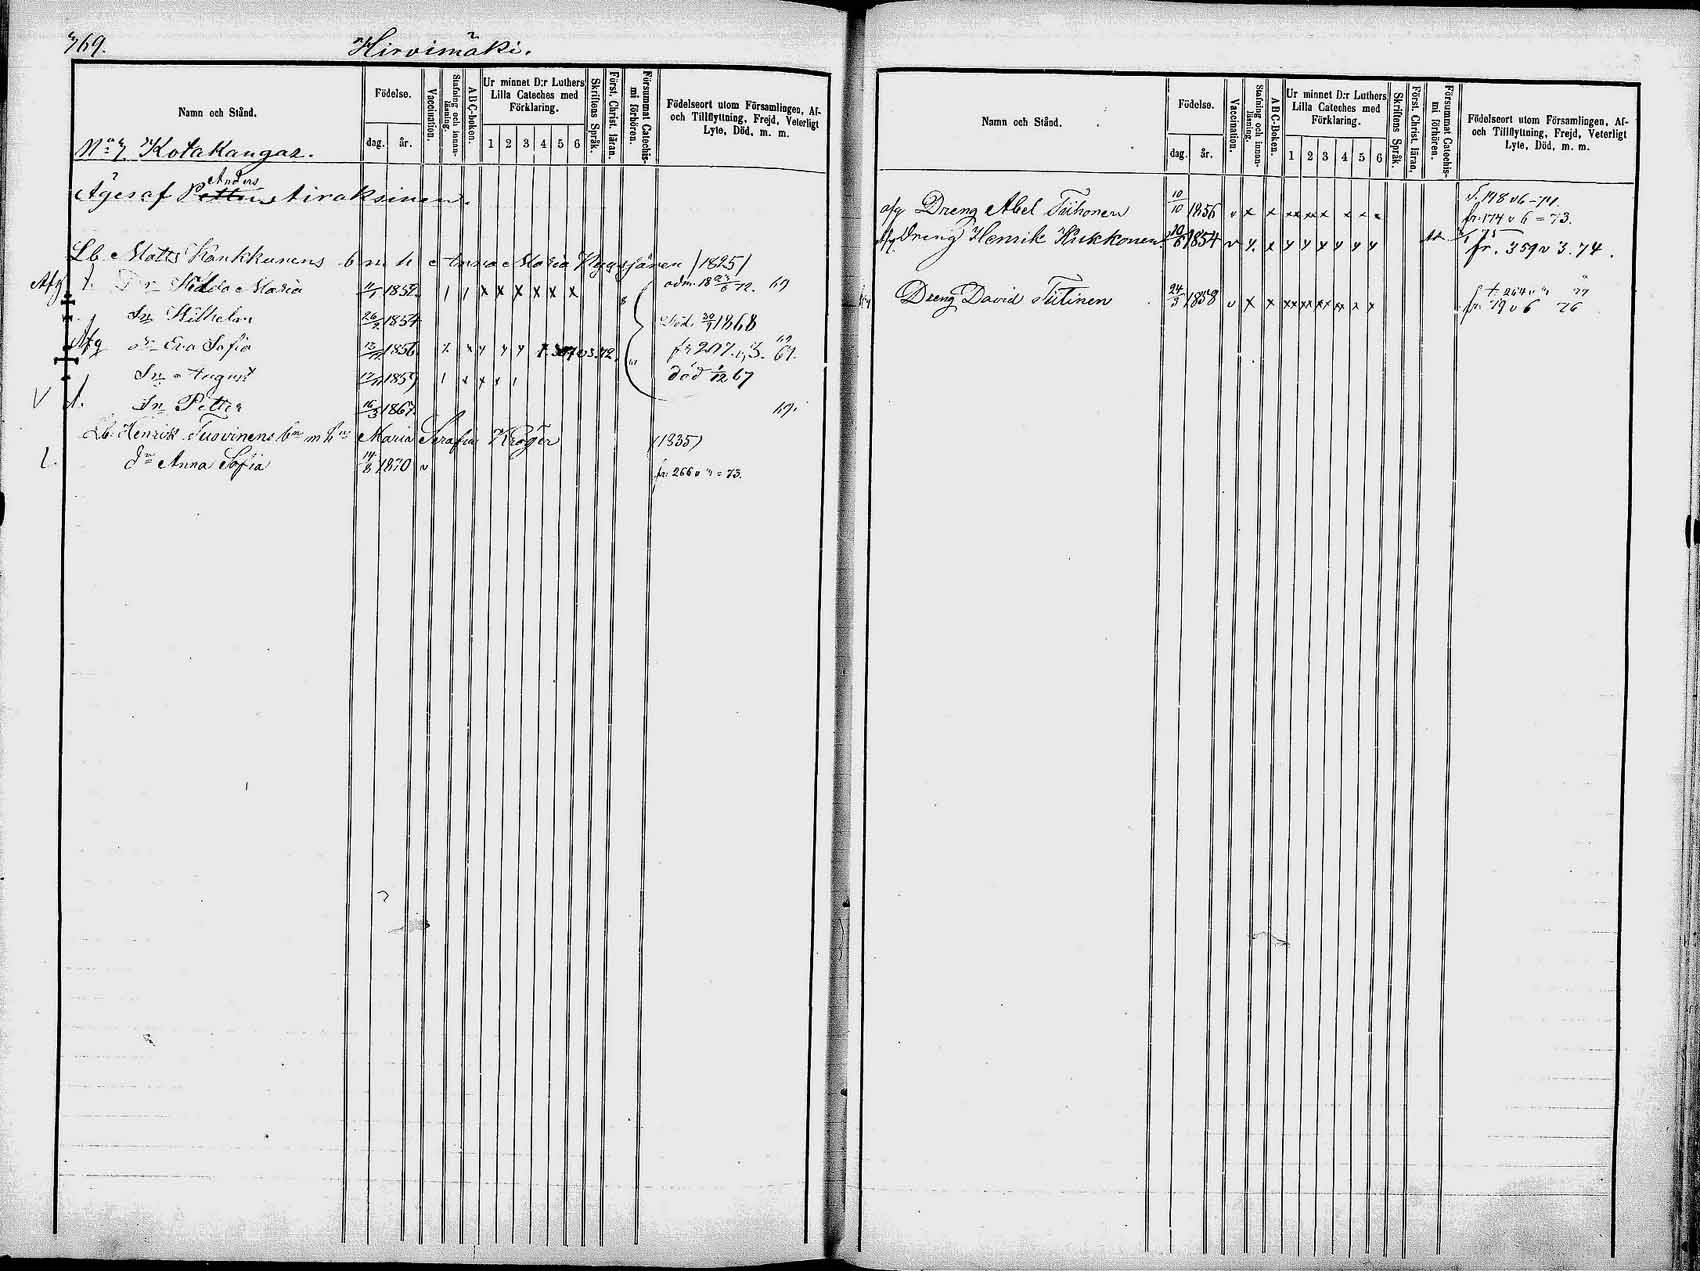 369.
Hirvimäki.
Namn och Stånd.
Födelse.
dag. år.
Vaccination.
Stafning och innan-läsning.
ABC-boken.
Ur minnet D:r Luthers Lilla Cateches med Förklaring.
1 2 3 4 5 6
Skriftens Språk.
Först. Christ. läran.
Försummat Catechis-mi förhören.
Födelseort utom Församlingen, Af- och Tillflyttning, Frejd, Veterligt Lyte, Död, m. m.
No 7 Kotakangas.
Anders
Äges af Petter Airaksinen.
Lb. Matts Kankkunens b m h Anna Maria /1825/
Afg Dr Hedda Maria 1852 x x x x x x adm. 18 72. 69
Sn Wilhelm 26/2 1854 Död 30/1 1868
Afg Dr Eva Sofia 1856 fr 207 v 3. 67.
Sn August 1859 död 1/12 67
V Sn Petter 16/3 1867 69.
Lb. Henrik Tuovinens bn m hu Maria Serafia Kröger (1835)
Dr Anna Sofia 14/8 1870 v fr. 266 v = 73.
Namn och Stånd.
Födelse.
dag. år.
Vaccination.
Stafning och innan-läsning.
ABC-Boken.
Ur minnet D:r Luthers Lilla Cateches med Förklaring.
1 2 3 4 5 6
Skriftens Språk.
Först. Christ. läran.
Försummat Catechis-mi förhören.
Födelseort utom Församlingen, Af- och Tillflyttning, Frejd, Veterligt Lyte, Död, m. m.
afg Dreng Abel Tiihonen 10/10 1856 v x x xx xx x x x fr. 174 v 6 = 73.
Dreng Henrik Kukkonen 1854 v x x fr. 359 v 3. 74.
Dreng David Tiitinen 24/3 1858 v x x xx xx xx xx x x fr. 79 v 6 76